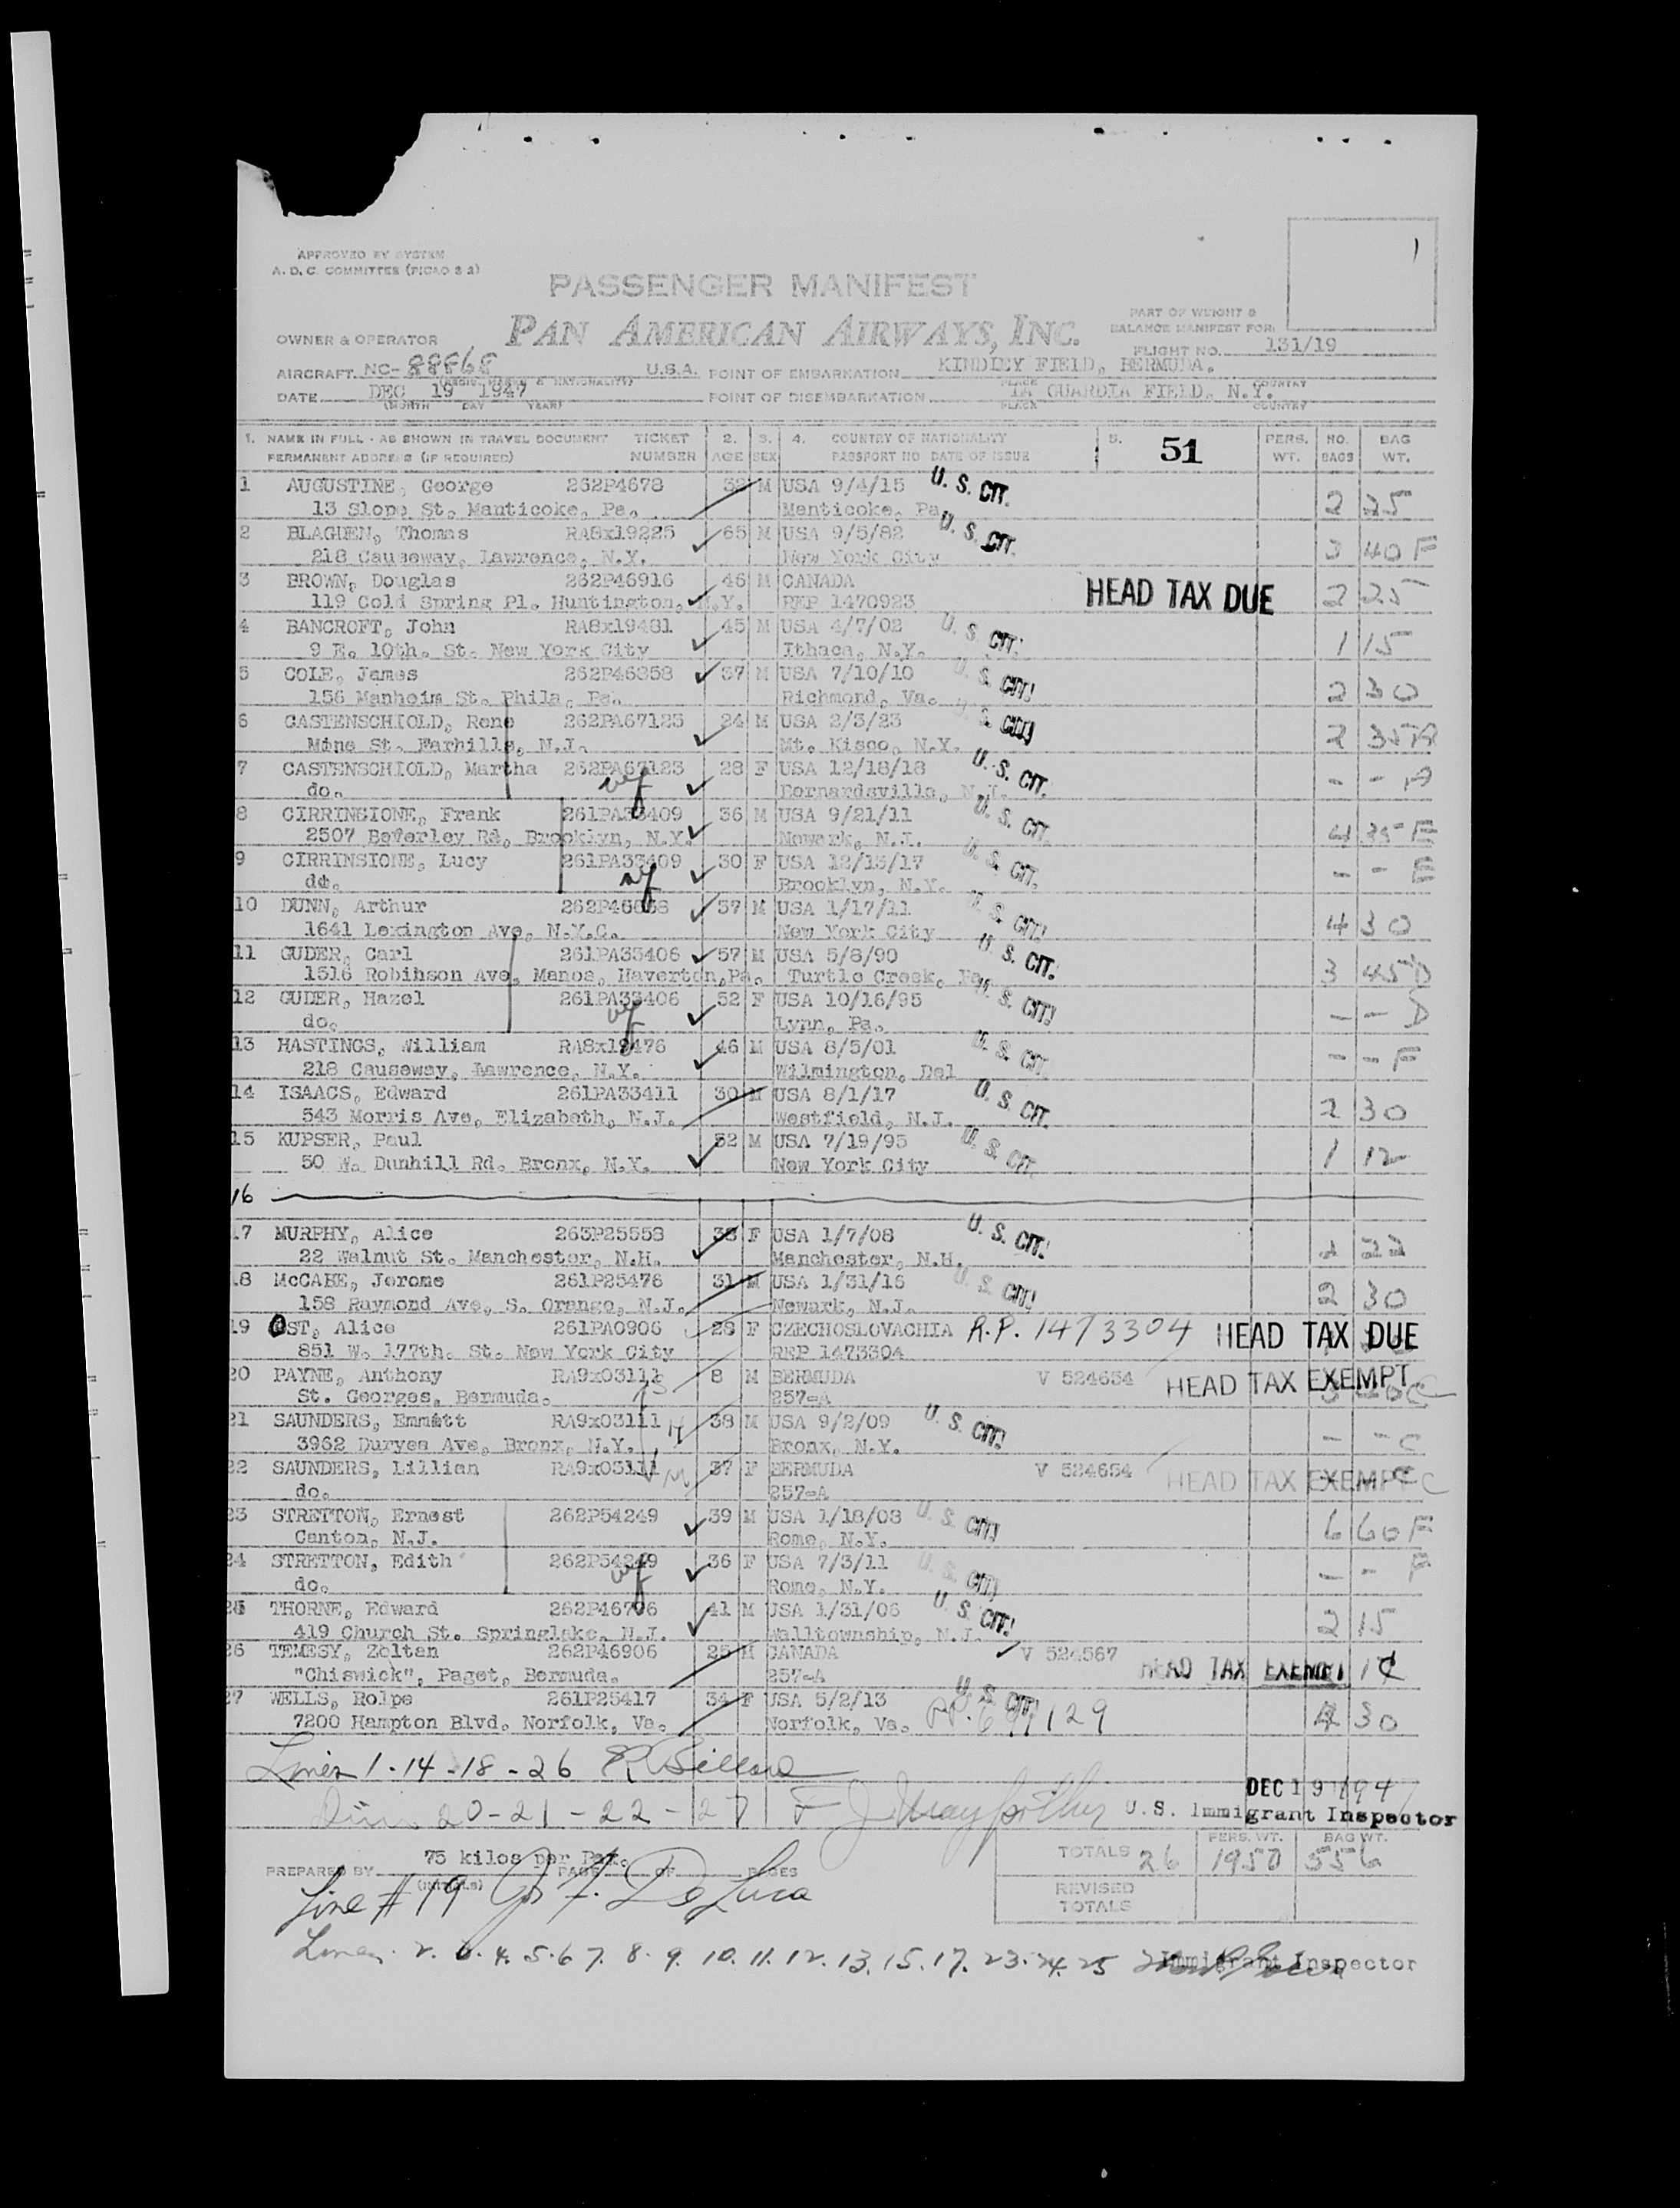 APPROVED BY SYSTEM
A. D. C. COMMITTEE (PICAO S 2)
PASSENGER MANIFEST
PAN AMERICAN AIRWAYS, INC.
PART OF WEIGHT &
BALANCE MANIFEST FOR:
OWNER & OPERATOR
FLIGHT NO. 131/19
AIRCRAFT NC- U.S.A. POINT OF EMBARKATION KINDLEY FIELD, BERMUDA.
PLACE COUNTRY
DATE DEC 19 1947 POINT OF DISEMBARKATION LA GUARDIA FIELD, N.Y.
(MONTH DAY YEAR) PLACE COUNTRY
1. NAME IN FULL - AS SHOWN IN TRAVEL DOCUMENT TICKET 2. 3. 4. COUNTRY OF NATIONALITY 5. 51 PERS. NO. BAG
PERMANENT ADDRESS (IF REQUIRED) NUMBER AGE SEX PASSPORT NO DATE OF ISSUE WT. BAGS WT.
1 AUGUSTINE, George 262P4678 32 M USA 9/4/15 U. S. CIT.
13 Slope St. Nanticoke, Pa. Nanticoke, Pa 2 25
2 BLAGDEN, Thomas RA8x19225 65 M USA 9/5/82 U. S. CIT.
218 Causeway, Lawrence, N.Y. New York City 3 40 F
3 BROWN, Douglas 262P46916 46 M CANADA HEAD TAX DUE
119 Cold Spring Pl. Huntington, N.Y. REP 1470923 2 25
4 BANCROFT, John RA8x19481 45 M USA 4/7/02 U. S. CIT.
9 E. 10th. St. New York City Ithaca, N.Y. 1 15
5 COLE, James 262P46358 37 M USA 7/10/10 U. S. CIT!
156 Manheim St. Phila, Pa. Richmond, Va. 2 30
6 CASTENSCHIOLD, Rene 262PA67123 24 M USA 2/3/23 U. S. CIT!
Mine St. Farhills, N.J. Mt. Kisco, N.Y. 2 35 A
7 CASTENSCHIOLD, Martha 262PA67123 28 F USA 12/18/18 U. S. CIT.
do. Bernardsville, N.J. - - A
8 CIRRINCIONE, Frank 261PA33409 36 M USA 9/21/11 U. S. CIT.
2507 Beverley Rd, Brooklyn, N.Y. Newark, N.J. 4 35 E
9 CIRRINSIONE, Lucy 261PA33409 30 F USA 12/13/17 U. S. CIT.
do. Brooklyn, N.Y. - - E
10 DUNN, Arthur 37 M USA 1/17/11 U. S. CIT!
1641 Lexington Ave, N.Y.C. New York City 4 30
11 GUDER, Carl 261PA33406 57 M USA 5/8/90 U. S. CIT.
1516 Robinson Ave, Manoa, Haverton,Pa. Turtle Creek, Pa 3 45 D
12 GUDER, Hazel 261PA33406 52 F USA 10/16/95 U. S. CIT!
do. Lynn, Pa. - - D
13 HASTINGS, William RA8x19476 46 M USA 8/5/01 U. S. CIT.
218 Causeway, Lawrence, N.Y. Wilmington, Del - - F
14 ISAACS, Edward 261PA33411 30 M USA 8/1/17 U. S. CIT.
543 Morris Ave, Elizabeth, N.J. Westfield, N.J. 2 30
15 KUPSER, Paul 52 M USA 7/19/95 U. S. CIT.
50 W. Dunhill Rd. Bronx, N.Y. New York City 1 12
16
17 MURPHY, Alice 263P25553 F USA 1/7/08 U. S. CIT!
22 Walnut St. Manchester, N.H. Manchester, N.H. 22
18 McCABE, Jerome 261P25476 31 M USA 1/31/16 U. S. CIT!
158 Raymond Ave, S. Orange, N.J. Newark, N.J. 2 30
19 OST, Alice 261PA0906 28 F CZECHOSLOVACHIA R.P. 1473304 HEAD TAX DUE
851 W. 177th. St. New York City REP 1473304
20 PAYNE, Anthony RA9x03111 8 M BERMUDA V 524654 HEAD TAX EXEMPT
St. Georges, Bermuda. 257-A C
21 SAUNDERS, Emmett RA9x03111 38 M USA 9/2/09 U. S. CIT!
3962 Duryea Ave, Bronx, N.Y. Bronx, N.Y. - - C
22 SAUNDERS, Lillian RA9x03111 37 F BERMUDA V 524654 HEAD TAX EXEMPT C
do. 257-A
23 STRETTON, Ernest 262P54249 39 M USA 1/18/08 U. S. CIT!
Canton, N.J. Rome, N.Y. 6 60 F
24 STRETTON, Edith 262P54249 36 F USA 7/3/11 U. S. CIT!
do. Rome, N.Y. - - F
25 THORNE, Edward 262P46706 41 M USA 1/31/06 U. S. CIT!
419 Church St. Springlake, N.J. Walltownship, N.J. 2 15
26 TEMESY, Zoltan 262P46906 25 M CANADA V 524567
"Chiswick", Paget, Bermuda. 257-A HEAD TAX EXEMPT
27 WELLS, Rolpe 261P25417 34 F USA 5/2/13 U. S. CIT!
7200 Hampton Blvd. Norfolk, Va. Norfolk, Va. 30
Lines 1-14-18-26
DEC 19 194
20-21-22-27 U.S. Immigrant Inspector
75 kilos per Pax. TOTALS 26 PERS. WT. 1950 BAG WT. 556
PREPARED BY (INITIALS) PAGE OF PAGES
REVISED TOTALS
Line #19 De Luca
Lines 2. 4. 5. 6 7. 8. 9. 10. 11. 12. 13. 15. 17. 23. 24. 25 Immigrant Inspector